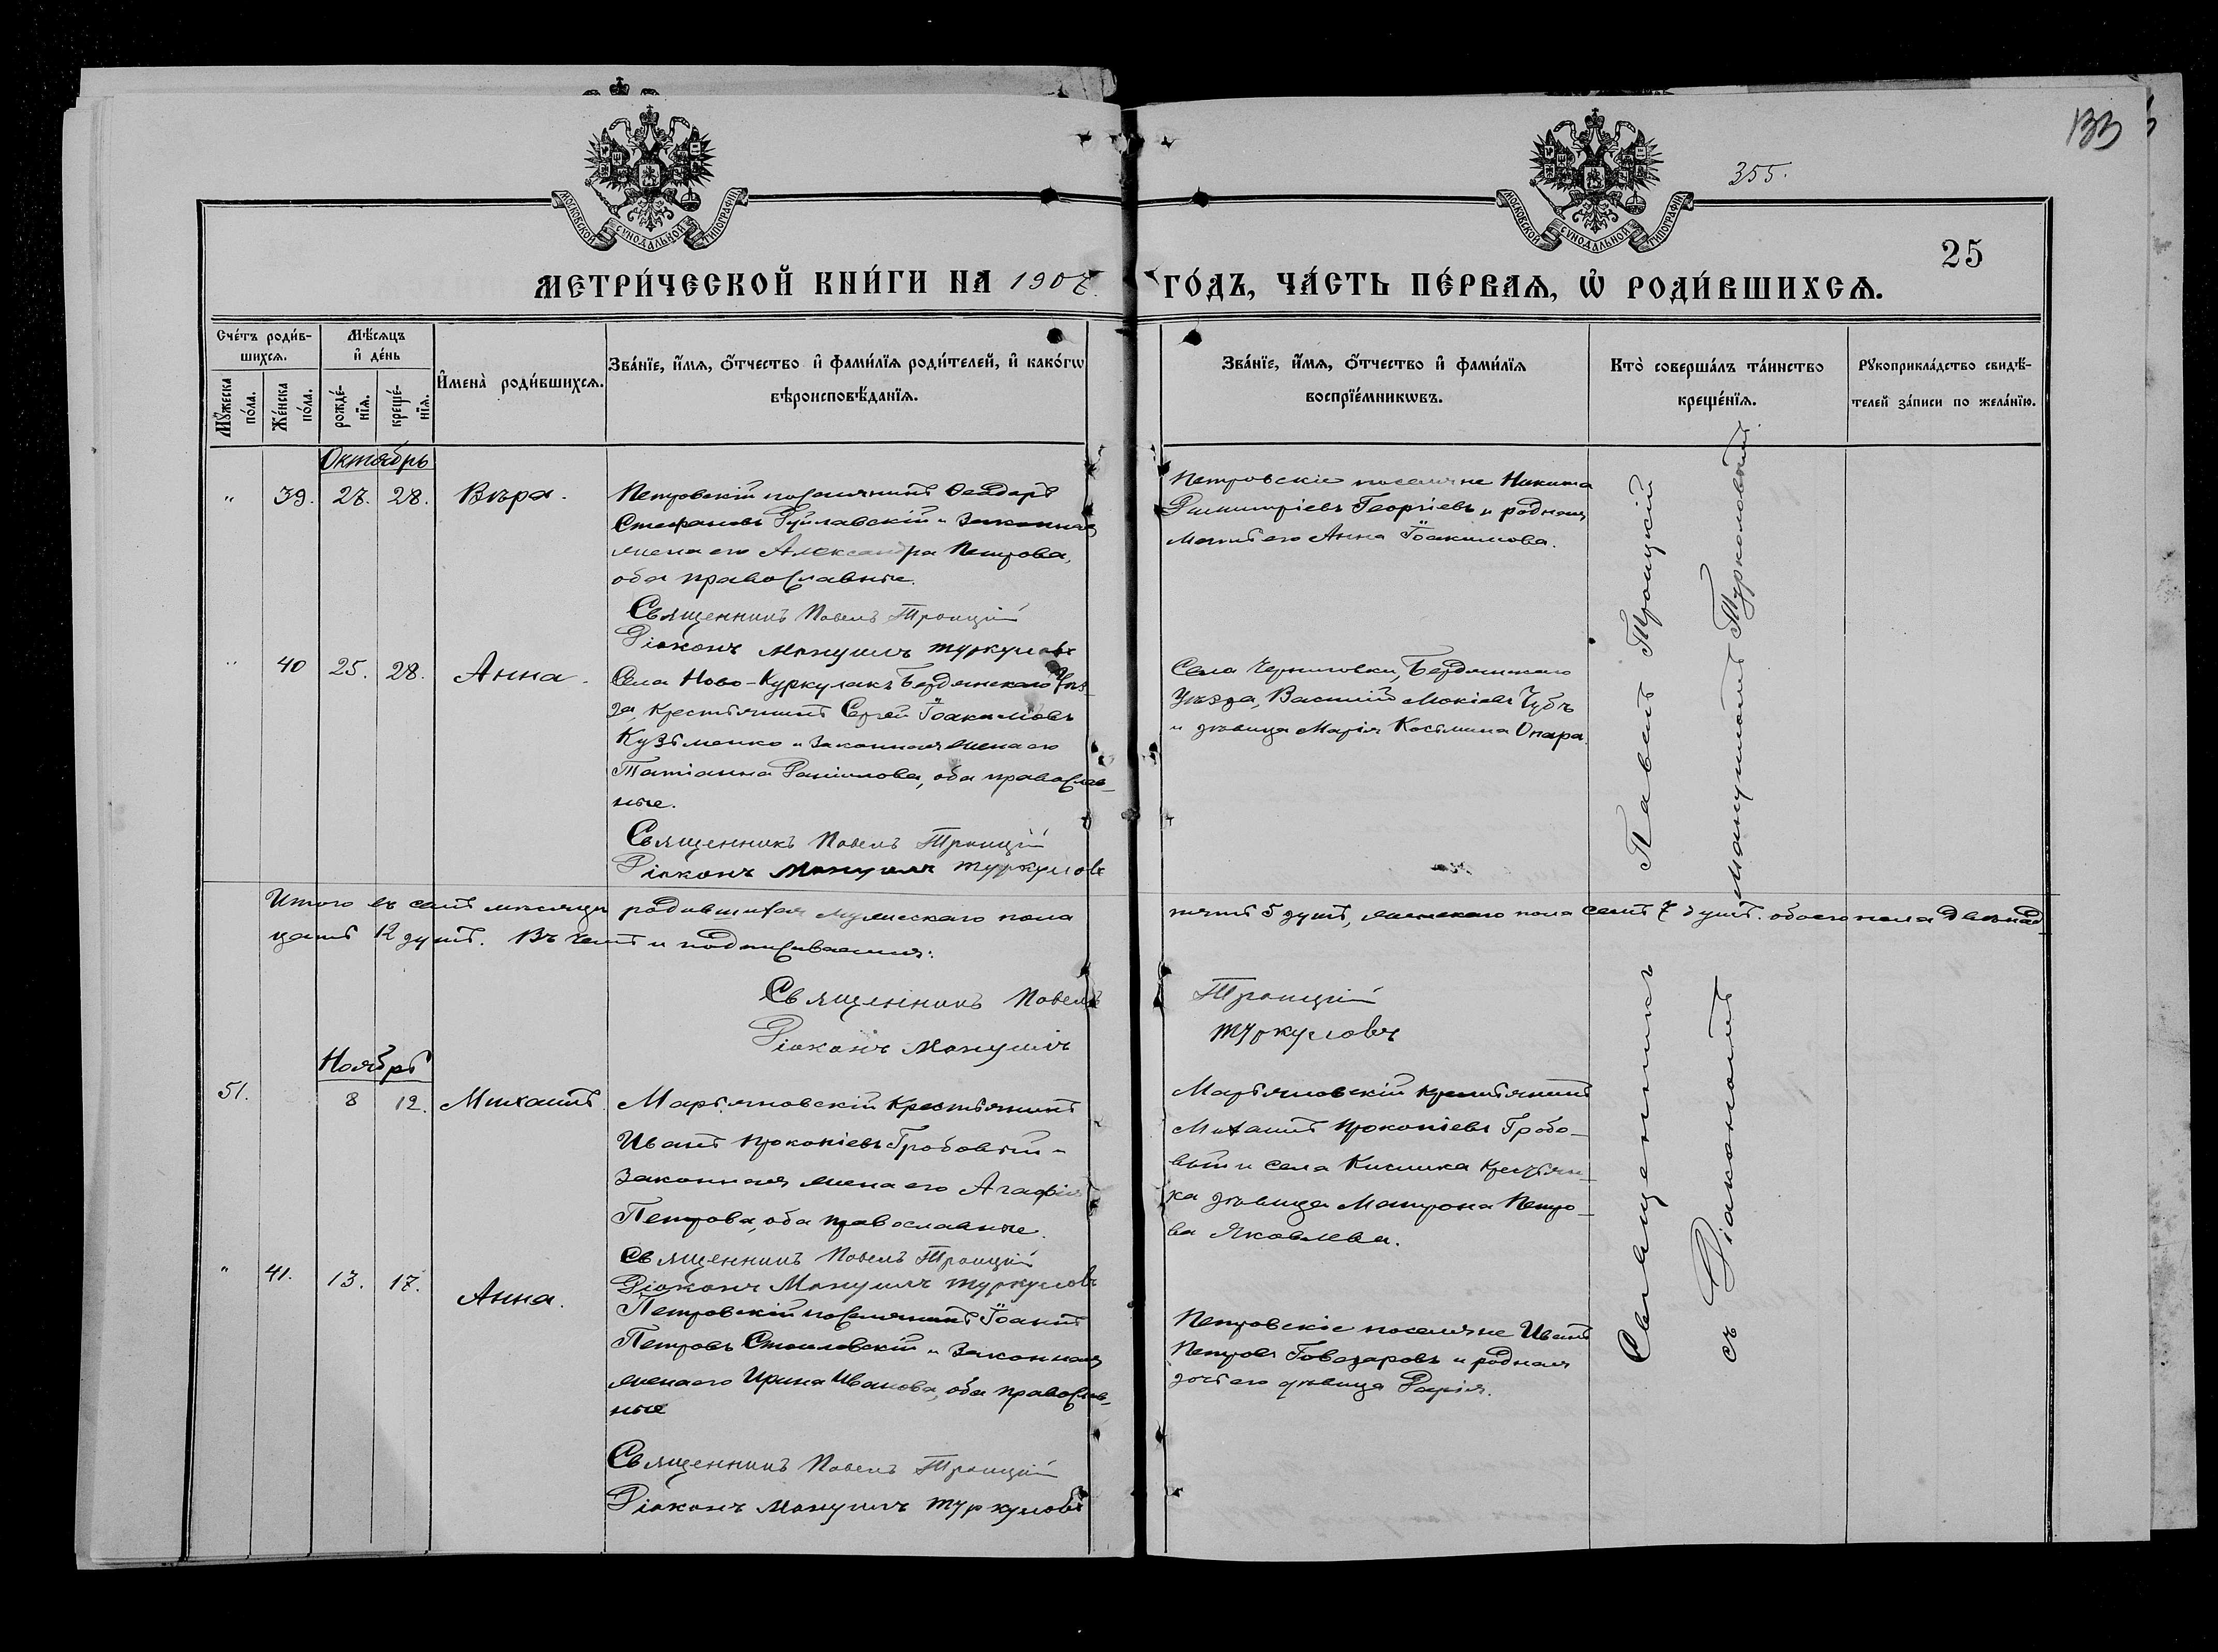 133
355.
25
МОСКОВСКОЙ СУНОДАЛЬНОЙ ТИПОГРАФІИ
МОСКОВСКОЙ СУНОДАЛЬНОЙ ТИПОГРАФІИ
МЕТРИ́ЧЕСКОЙ КНИ́ГИ НА 1907 ГО́ДЪ, ЧА́СТЬ ПЕ́РВАѦ, Ѡ҆ РОДИ́ВШИХСѦ.
Сче́тъ роди́в-
шихсѧ.
Мꙋ́жеска по́ла.
Же́нска по́ла.
Мѣ́сѧцъ
и҆ де́нь
рожде́-нїѧ.
креще́-нїѧ.
И҆мена̀ роди́вшихсѧ.
Зва́нїе, и҆́мѧ, ѻ҆́тчество и҆ фами́лїѧ роди́телей, и҆ како́гѡ
вѣроисповѣ́данїѧ.
Зва́нїе, и҆́мѧ, ѻ҆́тчество и҆ фами́лїѧ
воспрїе́мникѡвъ.
Кто̀ соверша́лъ та́инство
креще́нїѧ.
Рꙋкоприкла́дство свидѣ́-
телей за́писи по жела́нїю.
Октябрь
" 39. 27. 28. Вѣра.
Петровскій поселянинъ Ѳеодоръ
Стефановъ Гуйлавскій и законная
жена его Александра Петрова,
оба православные.
Священникъ Павелъ Троицкій
Діаконъ Мануилъ Туркуловъ
Петровскіе поселяне Никита
Димитріевъ Георгіевъ и родная
мать его Анна Іоакимова.
" 40 25. 28. Анна.
Села Ново-Куркулакъ Бердянскаго уѣз-
да, крестьянинъ Сергей Іоакимовъ
Кузьменко и законная жена его
Татіанна Даніилова, оба православ-
ные.
Священникъ Павелъ Троицкій
Діаконъ Мануилъ Туркуловъ
Села Черниговки, Бердянскаго
Уѣзда, Василій Мокіевъ Чубъ
и дѣвица Марія Косьмина Опара.
Итого въ семъ мѣсяцѣ родившихся мужескаго пола пять 5 душъ, женскаго пола семь 7 душъ. обоего пола двѣнад-
цать 12 душъ. Въ чемъ и подписываемся:
Священникъ Павелъ Троицкій
Діаконъ Мануилъ Туркуловъ
Ноябрь
51. 8 12. Михаилъ.
Мартяновскій крестьянинъ
Иванъ Прокопіевъ Гробовый и
законная жена его Агафія
Петрова, оба православные.
Священникъ Павелъ Троицкій
Діаконъ Мануилъ Туркуловъ
Мартяновскій крестьянинъ
Михаилъ Прокопіевъ Гробо-
вый и села крестьян-
ка дѣвица Матрона Петро-
ва Яковлева.
" 41. 13. 17. Анна.
Петровскій поселянинъ Іоаннъ
Петровъ Стоиловскій и законная
жена его Ирина Иванова, оба православ-
ные
Священникъ Павелъ Троицкій
Діаконъ Мануилъ Туркуловъ
Петровскіе поселяне Иванъ
Петровъ Говодаровъ и родная
дочь его дѣвица Дарія.
Священникъ Павелъ Троицкій
съ Діакономъ Мануиломъ Туркуловымъ.